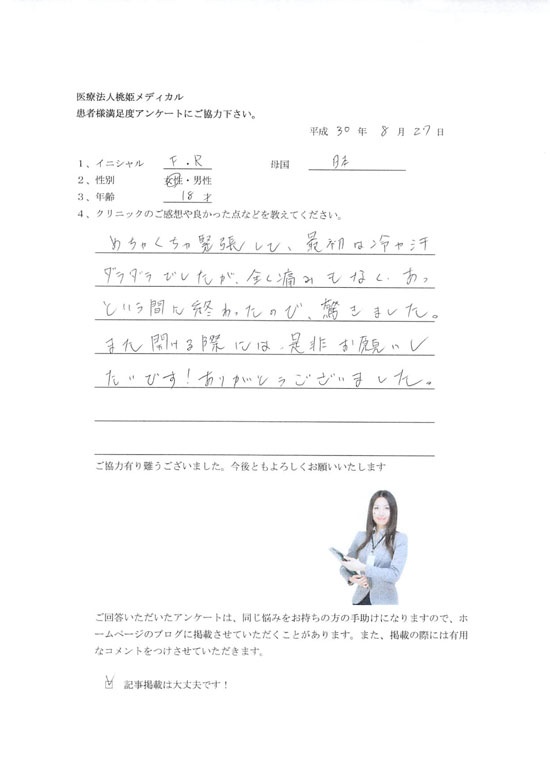 医療法人桃姫メディカル
患者様満足度アンケートにご協力下さい。
平成 30 年 8 月 27 日
1、イニシャル F.R 母国 日本
2、性別 女性・男性
3、年齢 18 才
4、クリニックのご感想や良かった点などを教えてください。
めちゃくちゃ緊張して、最初は冷や汗
ダラダラでしたが、全く痛みもなく、あっ
という間に終わったので、驚きました。
また開ける際には、是非お願いし
たいです!ありがとうございました。
ご協力有り難うございました。今後ともよろしくお願いいたします
ご回答いただいたアンケートは、同じ悩みをお持ちの方の手助けになりますので、ホ
ームページのブログに掲載させていただくことがあります。また、掲載の際には有用
なコメントをつけさせていただきます。
☑ 記事掲載は大丈夫です!